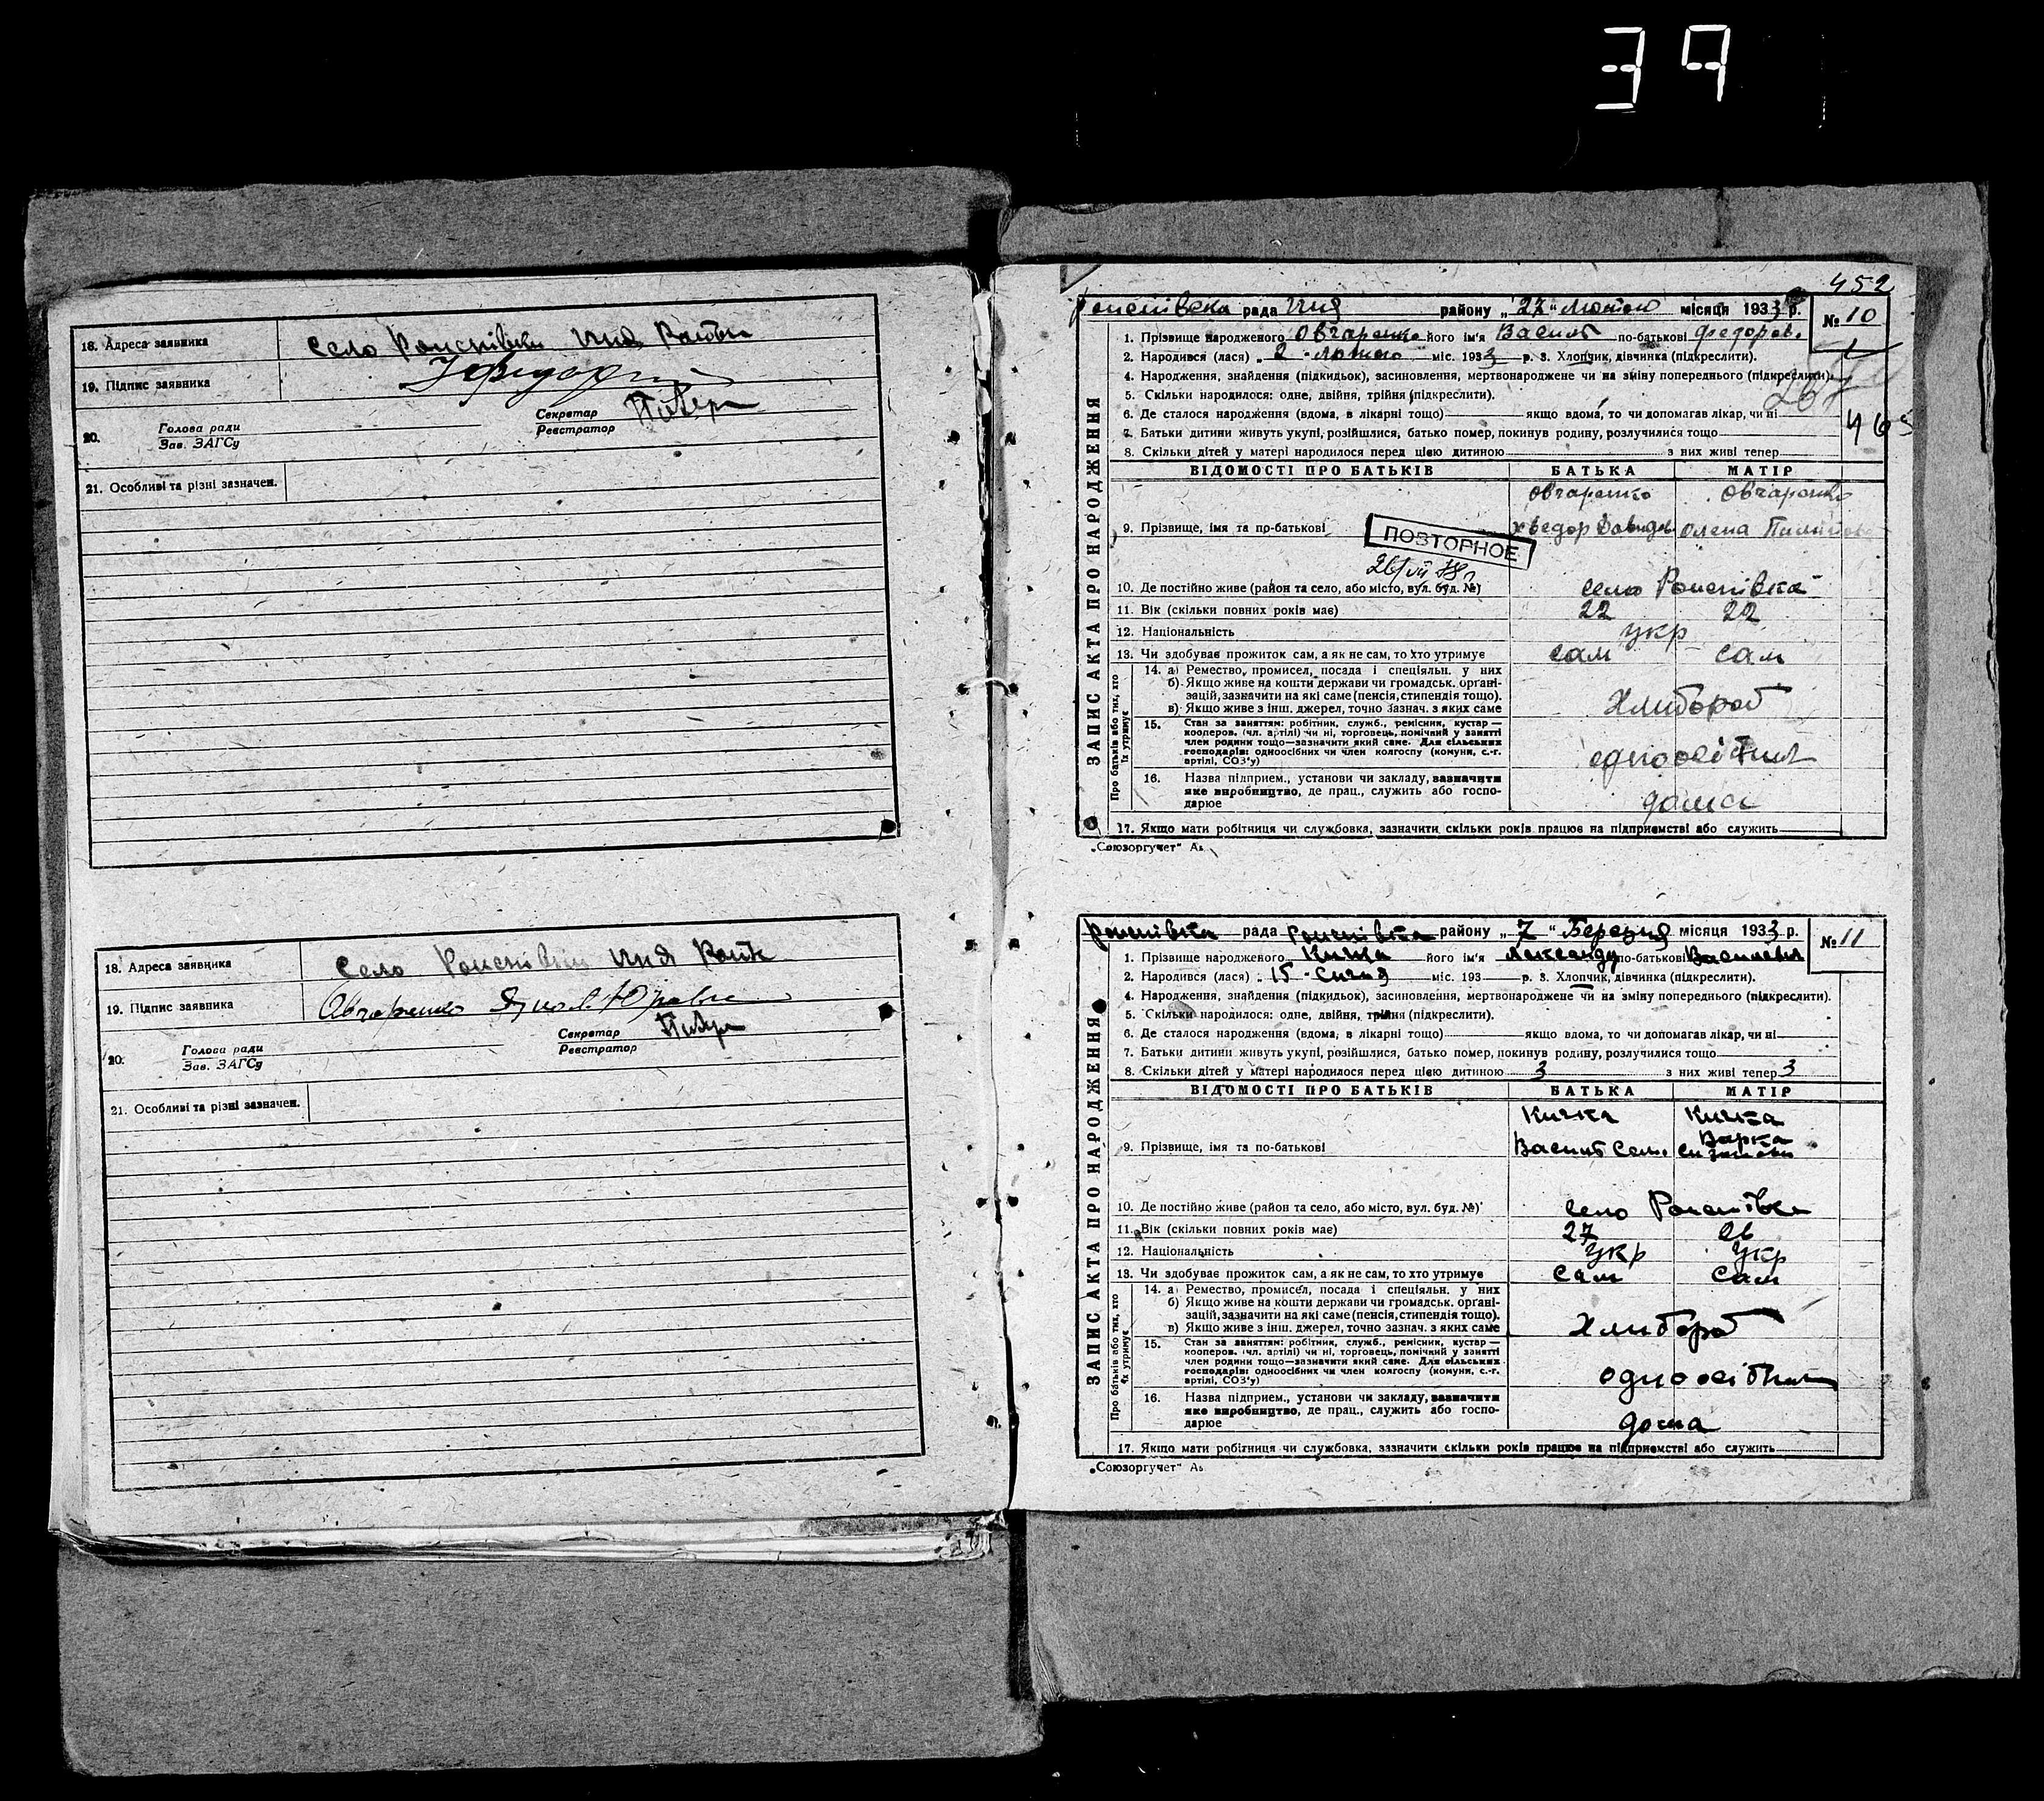 39
18. Адреса заявника
село
19. Підпис заявника
20. Голова ради
Зав. ЗАГСу
Секретар
Реєстратор
21. Особливі та різні зазначен.
18. Адреса заявника
село
19. Підпис заявника
Овчаренко
20. Голова ради
Зав. ЗАГСу
Секретар
Реєстратор
21. Особливі та різні зазначен.
452
рада району „27“ Лютого місяця 1933 р.
№ 10
1. Прізвище народженого Овчаренко його ім'я Василь по-батькові Федоров.
2. Народився (лася) „ 2 - лютого міс. 1933 р. 3. Хлопчик, дівчинка (підкреслити).
4. Народження, знайдення (підкидьок), засиновлення, мертвонароджене чи на зміну попереднього (підкреслити).
5. Скільки народилося: одне, двійня, трійня (підкреслити).
6. Де сталося народження (вдома, в лікарні тощо) якщо вдома, то чи допомагав лікар, чи ні
7. Батьки дитини живуть укупі, розійшлися, батько помер, покинув родину, розлучилися тощо
8. Скільки дітей у матері народилося перед цією дитиною з них живі тепер
ЗАПИС АКТА ПРО НАРОДЖЕННЯ
ВІДОМОСТІ ПРО БАТЬКІВ БАТЬКА МАТІР
Овчаренко Овчаренко
9. Прізвище, імя та по-батькові Хведор Давидов Олена
ПОВТОРНОЕ
10. Де постійно живе (район та село, або місто, вул. буд. №) село
11. Вік (скільки повних років має) 22 22
12. Національність укр
13. Чи здобуває прожиток сам, а як не сам, то хто утримує сам сам
Про батьків або тих, хто їх утримує
14. а) Ремество, промисел, посада і спеціяльн. у них
б) Якщо живе на кошти держави чи громадськ. органі-
зацій, зазначити на які саме (пенсія, стипендія тощо).
в) Якщо живе з інш. джерел, точно зазнач. з яких саме
Хлибороб
15. Стан за заняттям: робітник, служб., ремісник, кустар —
кооперов. (чл. артілі) чи ні, торговець, помічний у занятті
член родини тощо—зазначити який саме. Для сільських
господарів: одноосібних чи член колгоспу (комуни, с.-г.
артілі, СОЗ'у)
одноосібник
16. Назва підприєм., установи чи закладу, зазначити
яке виробництво, де прац., служить або госпо-
дарює
дома
17. Якщо мати робітниця чи службовка, зазначити скільки років працює на підприємстві або служить
„Союзоргучет“ А₅
рада району „7“ Березня місяця 1933 р.
№ 11
1. Прізвище народженого його ім'я по-батькові
2. Народився (лася) „ 15 - Сичня міс. 193 р. 3. Хлопчик, дівчинка (підкреслити).
4. Народження, знайдення (підкидьок), засиновлення, мертвонароджене чи на зміну попереднього (підкреслити).
5. Скільки народилося: одне, двійня, трійня (підкреслити).
6. Де сталося народження (вдома, в лікарні тощо) якщо вдома, то чи допомагав лікар, чи ні
7. Батьки дитини живуть укупі, розійшлися, батько помер, покинув родину, розлучилися тощо
8. Скільки дітей у матері народилося перед цією дитиною 3 з них живі тепер 3
ЗАПИС АКТА ПРО НАРОДЖЕННЯ
ВІДОМОСТІ ПРО БАТЬКІВ БАТЬКА МАТІР
Кичка Кичка
Варка
9. Прізвище, імя та по-батькові Василь Сем.
10. Де постійно живе (район та село, або місто, вул. буд. №) село
11. Вік (скільки повних років має) 27 26
12. Національність укр укр
13. Чи здобуває прожиток сам, а як не сам, то хто утримує сам сам
Про батьків або тих, хто їх утримує
14. а) Ремество, промисел, посада і спеціяльн. у них
б) Якщо живе на кошти держави чи громадськ. органі-
зацій, зазначити на які саме (пенсія, стипендія тощо).
в) Якщо живе з інш. джерел, точно зазнач. з яких саме
Хлибороб
15. Стан за заняттям: робітник, служб., ремісник, кустар —
кооперов. (чл. артілі) чи ні, торговець, помічний у занятті
член родини тощо—зазначити який саме. Для сільських
господарів: одноосібних чи член колгоспу (комуни, с.-г.
артілі, СОЗ'у)
одноосібник
16. Назва підприєм., установи чи закладу, зазначити
яке виробництво, де прац., служить або госпо-
дарює
дома
17. Якщо мати робітниця чи службовка, зазначити скільки років працює на підприємстві або служить
„Союзоргучет“ А₅